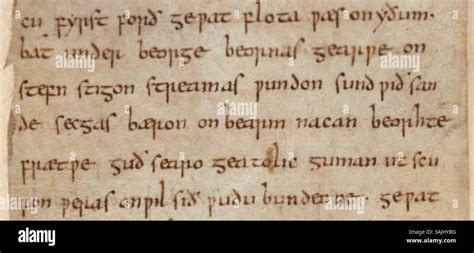 cu fyrst forð geƿat flota ƿæs on yðum.
bat under beorge beornas gearƿe on
stefn stigon streamas ƿundon sund ƿið san
de secgas bæron on bearm nacan beorhte
frætƿe guð searo geatolic guman ut scu
fon ƿeras on ƿil sið ƿudu bundenne. geƿat
alamy
Image ID: 3AJHYBG
www.alamy.com